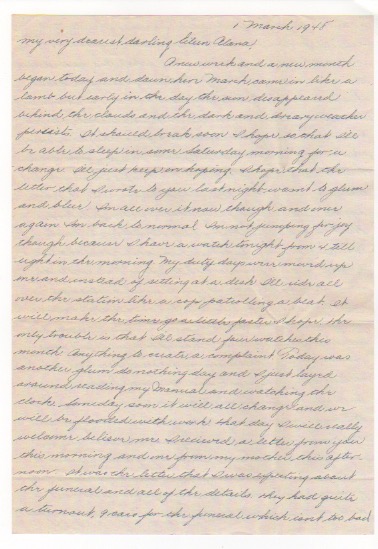 1 March 1948
My very dearest darling Eileen Alana,
A new week and a new month
began today and down here March came in like a
lamb but early in the day the sun disappeared
behind the clouds and the dark and dreary weather
persists. It should break soon I hope so that I'll
be able to sleep in some Saturday morning for a
change. I'll just keep on hoping. I hope that the
letter that I wrote to you last night wasn't to glum
and blue. I'm all over it now though and once
again I'm back to normal. I'm not jumping for joy
though because I have a watch tonight from 4 till
eight in the morning. My duty days were mixed up
on me and instead of sitting at a desk I'll ride all
over the station like a cop patrolling a beat. It
will make the time go a little faster I hope. The
only trouble is that I'll stand four watches this
month. Anything to create a complaint. Today was
another glum do nothing day and I just layed
around reading my Manual and watching the
clock. Someday soon it will all change and we
will be flooded with work. That day I will really
welcome, believe me. I received a letter from you
this morning and one from my mother this after-
noon. It was the letter that I was expecting about
the funeral and all of the details. They had quite
a turnout, 9 cars for the funeral which isn't too bad